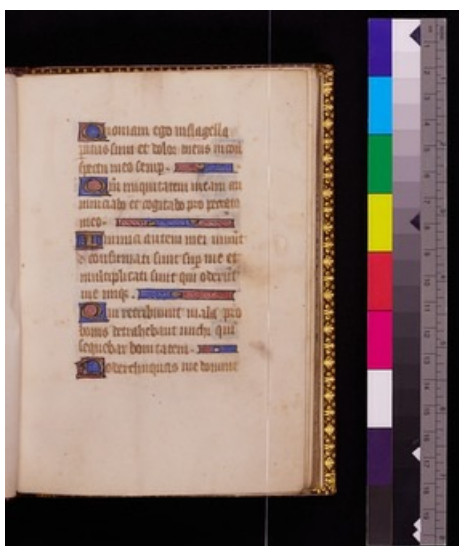 Quoniam ego in flagella
paratus sum et dolor meus in con
spectu meo semp.
Qm̄ iniquitatem meam an
nunciabo et cogitabo pro peccato
meo.
Inimici autem mei vivunt
et confirmati sunt sup me et
multiplicati sunt qui oderūt
me iniq.
Qui retribuunt mala pro
bonis detrahebant michi qm̄
sequebar bonitatem.
Ne derelinquas me domine